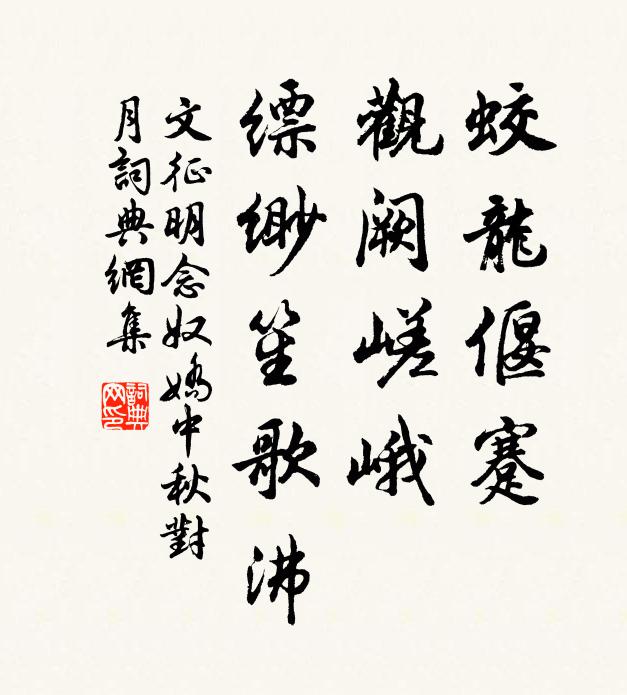 蛟龍偃蹇
觀阙嵯峨
缥缈笙歌沸
文征明念奴嬌中秋對
月詞典網集
詞典
网印